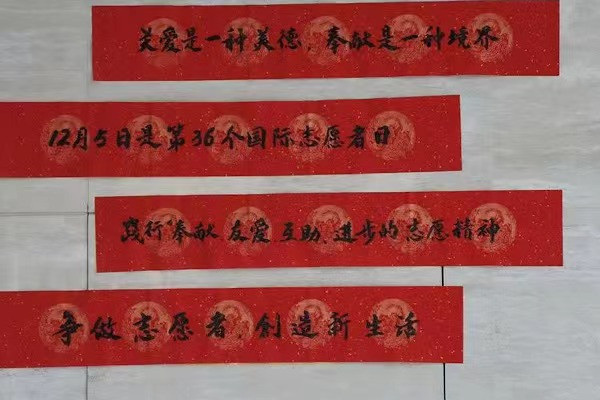 关爱是一种美德，奉献是一种境界
12月5日是第36个国际志愿者日
践行奉献 友爱 互助、进步的志愿精神
争做志愿者，创造新生活